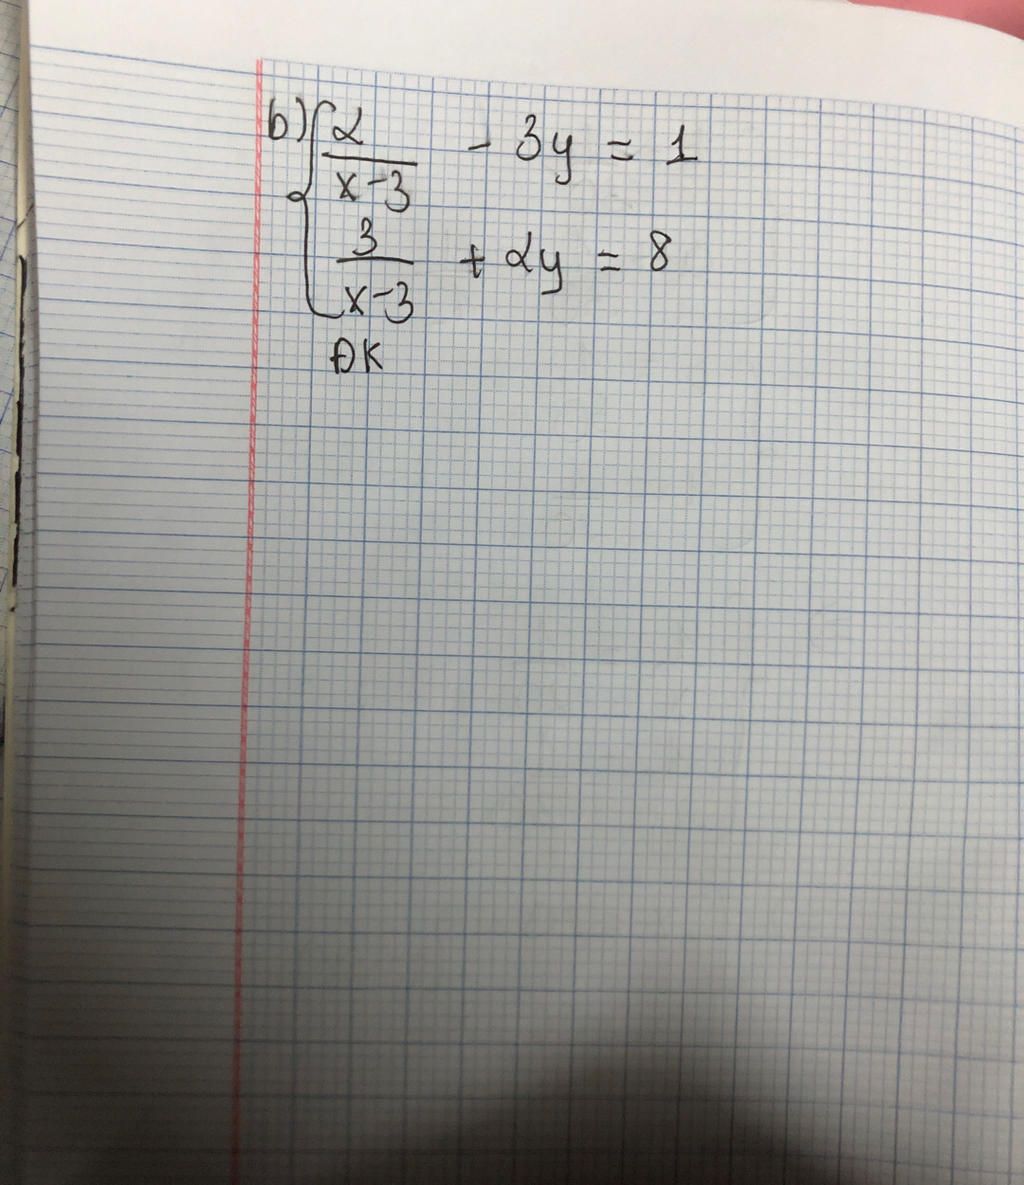 b) { 2/(x-3) - 3y = 1
3/(x-3) + 2y = 8
ĐK